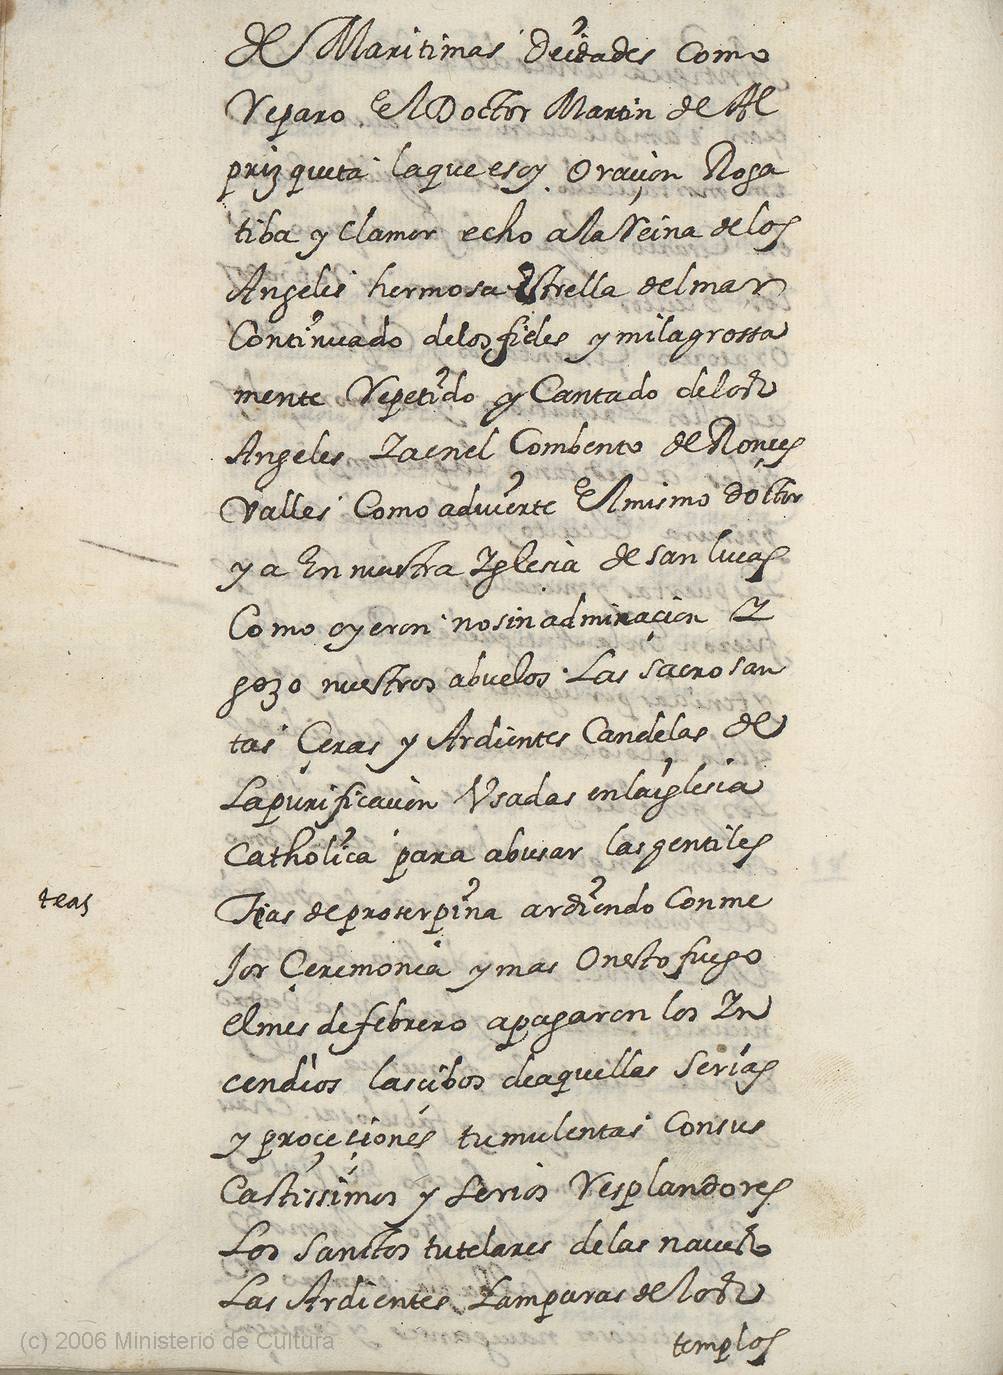 de Maritimas deidades como
reparo el Doctor Martin de Al
prizqueta la que es oy oracion Roga
tiba y clamor echo a la Reina de los
Angeles hermosa Estrella del mar
Continuado de los fieles y milagrossa
mente repetido y Cantado de los
Angeles Ya en el Combento de Ronçes
Valles Como aduierte el mismo doctor
y a En nuestra Yglesia de san lucas
Como oyeron no sin admiraçion Y
gozo nuestros abuelos Las Sacrosan
tas Çeras y Ardientes Candelas de
La purificacion Vsadas en la iglesia
Catholica para abusar las gentiles
teas Teas de proserpina ardiendo Con me
Jor Çeremonia y mas Onesto fuego
el mes de febrero apagaron los Yn
cendios lascibos de aquellas Serias
y proçeçiones tumulentas Con sus
Castissimos y serios resplandores
Los Sanctos tutelares de las naues
Las Ardientes Lamparas de los
templos
(c) 2006 Ministerio de Cultura